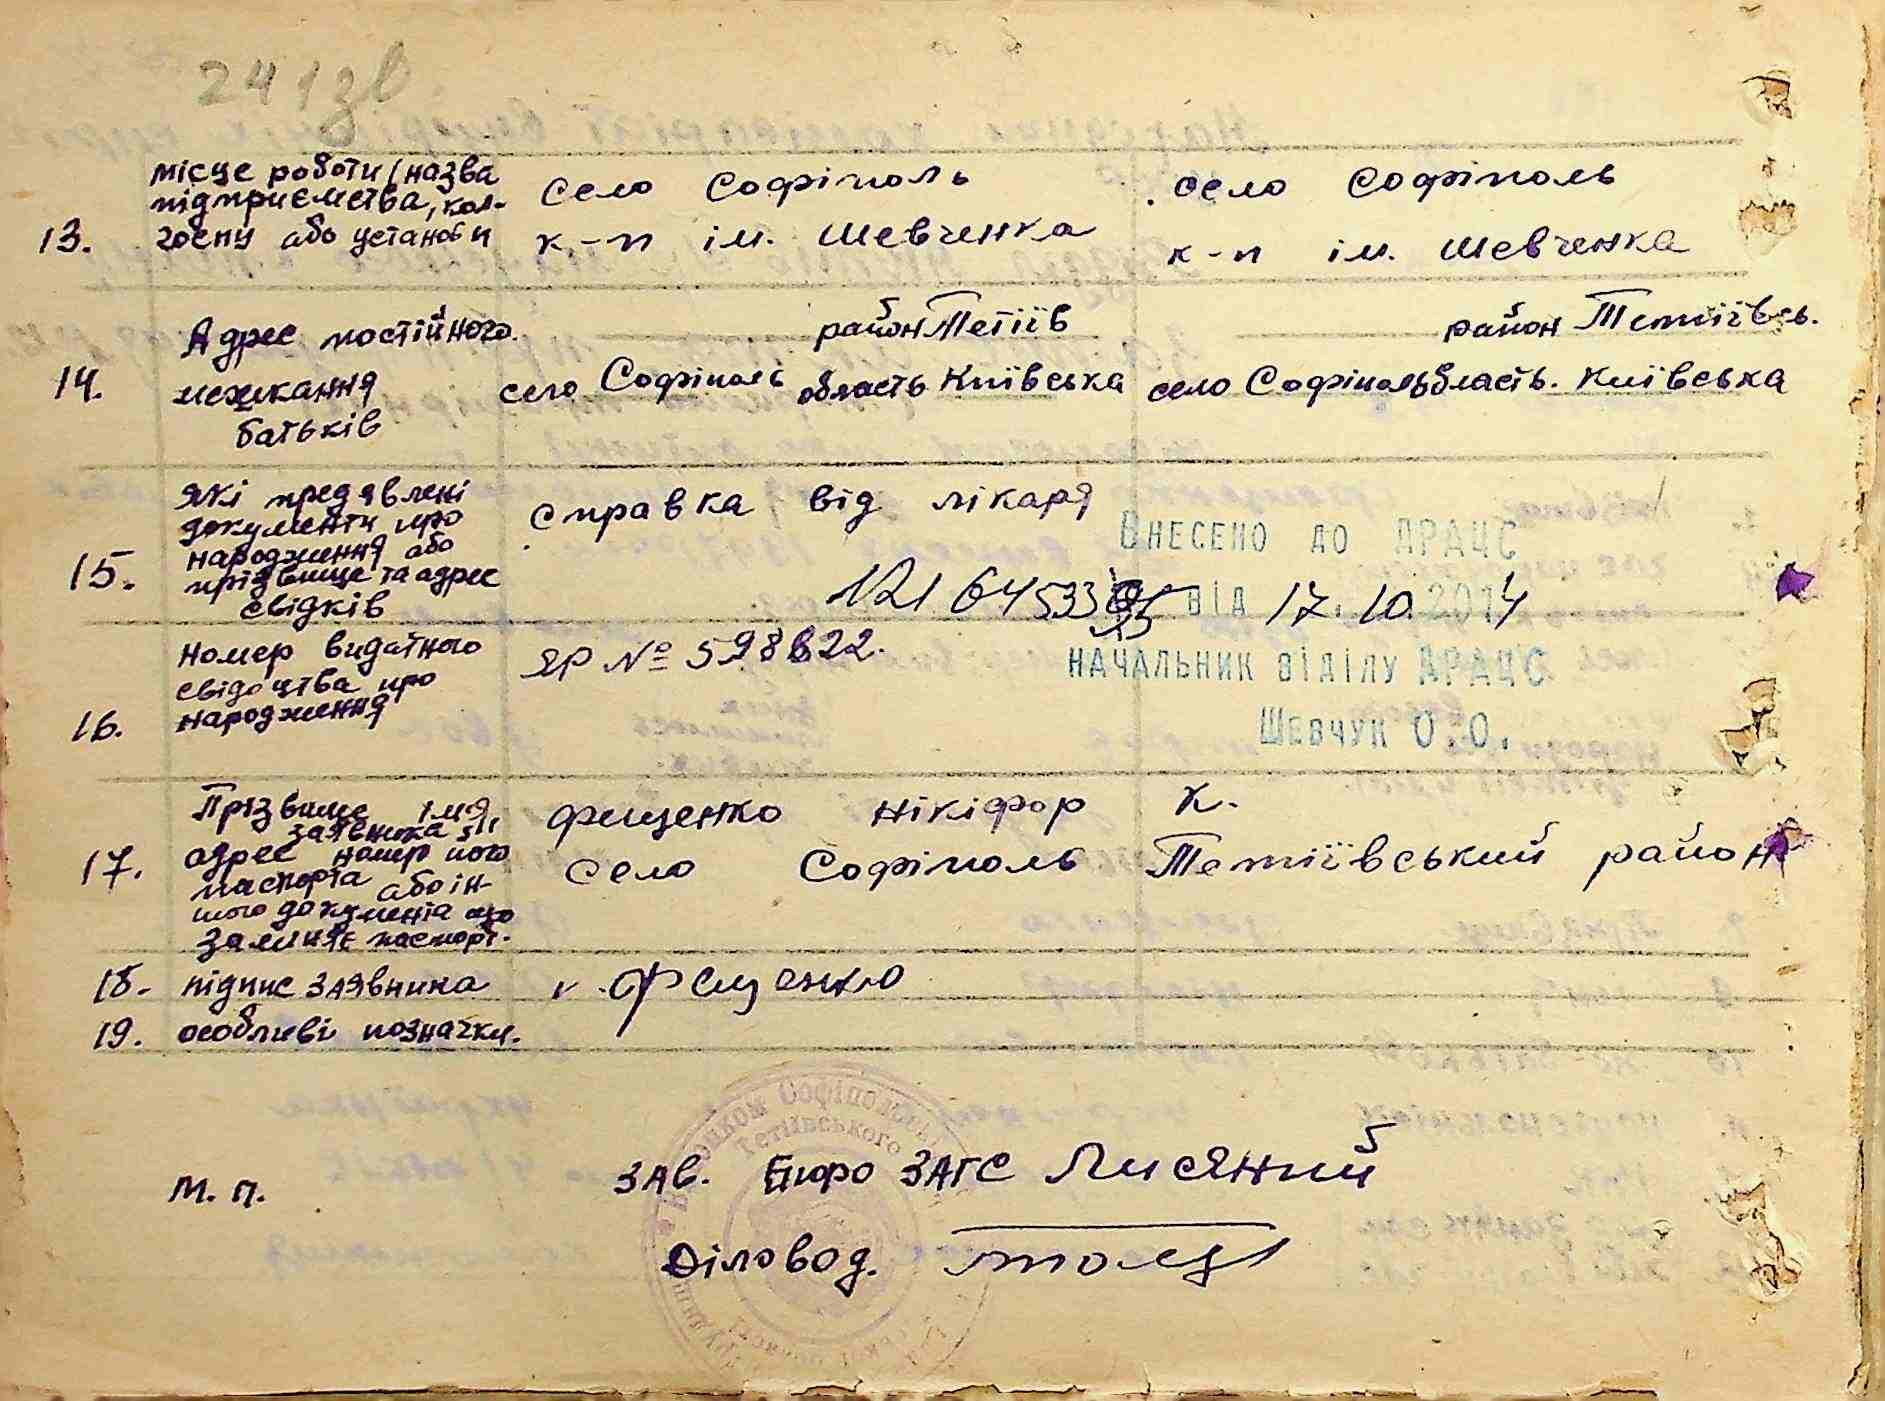 241зв
13.
місце роботи (назва
підприємства, кол-
госпу або установи
село Софіполь
к-п ім. Шевченка
село Софіполь
к-п ім. Шевченка
14.
Адрес постійного
мешкання
батьків
район Тетіїв
село Софіполь область Київська
район Тетіївсь.
село Софіполь область. Київська
15.
які предявлені
документи про
народження або
прізвище та адрес
свідків
справка від лікаря
Внесено до ДРАЦС
від 17.10.2014
начальник відділу ДРАЦС
Шевчук О.О.
16.
номер видатного
свідоцтва про
народження
ЯР № 598622.
17.
Прізвище імя
заявника
адрес номер його
паспорта або ін-
шого документа що
заміняє паспорт.
Фещенко Нікіфор К.
село Софіполь Тетіївський район
18. підпис заявника
Фещенко
19. особливі позначки.
м. п.
зав. Бюро ЗАГС Лисяний
Діловод.